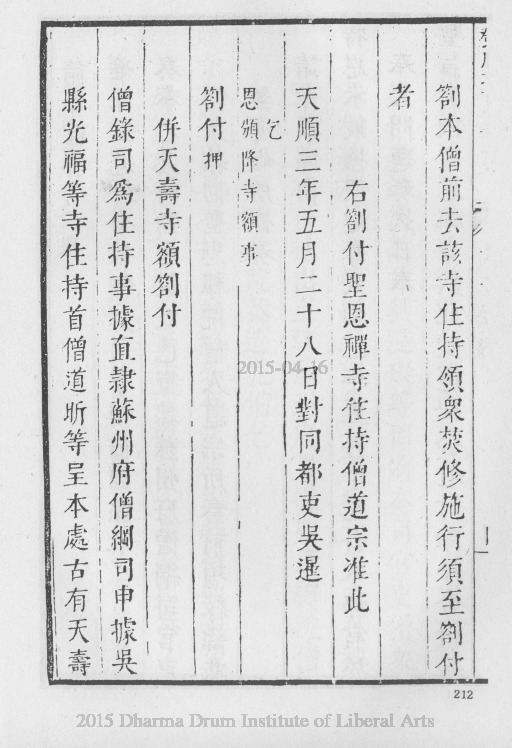 劄本僧前去該寺住持領衆焚修施行須至劄付
者
右劄付聖恩禪寺住持僧道宗准此
天順三年五月二十八日對同都吏吳暹
乞
恩頒降寺額事
劄付押
併天壽寺額劄付
僧錄司爲住持事據直隷蘇州府僧綱司申據吳
縣光福等寺住持首僧道昕等呈本處古有天壽
212
2015-04-16
2015 Dharma Drum Institute of Liberal Arts